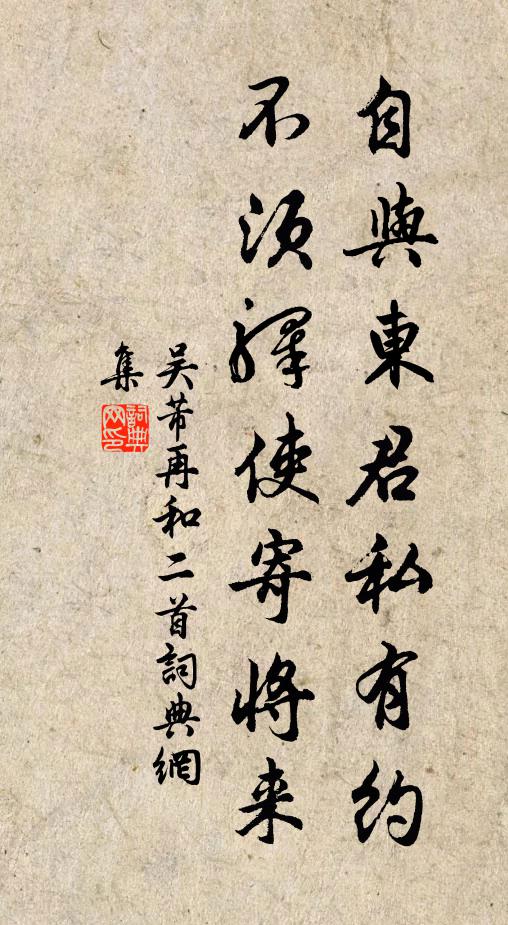 自與東君私有約
不須驛使寄將来
吴芾再和二首詞典網
集
詞典网印